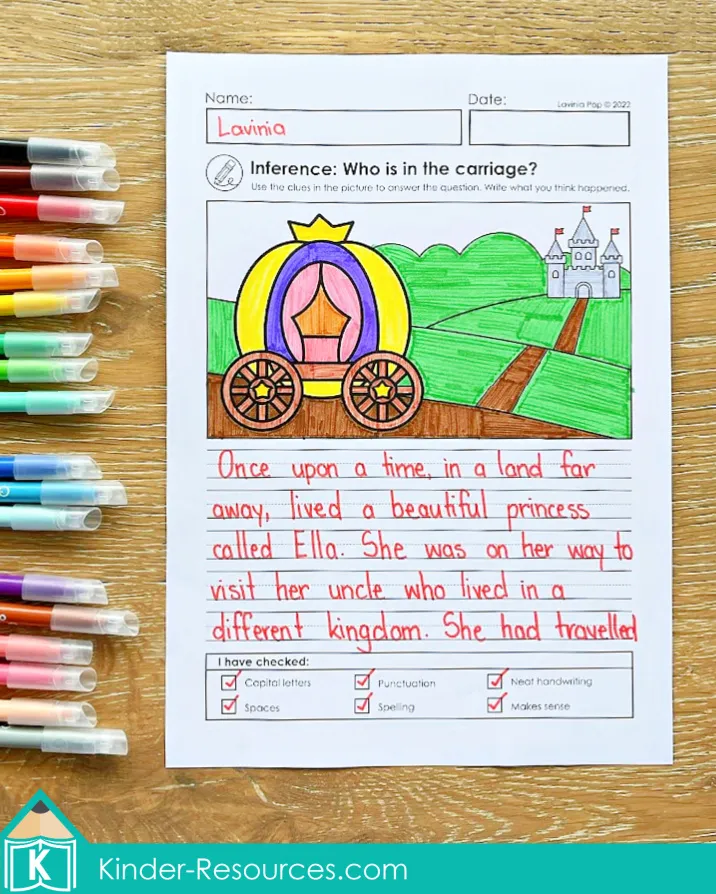 Name:
Date:
Lavinia Pop © 2022
Lavinia
Inference: Who is in the carriage?
Use the clues in the picture to answer the question. Write what you think happened.
Once upon a time, in a land far
away, lived a beautiful princess
called Ella. She was on her way to
visit her uncle who lived in a
different kingdom. She had travelled
I have checked:
Capital letters
Punctuation
Neat handwriting
Spaces
Spelling
Makes sense
K
Kinder-Resources.com